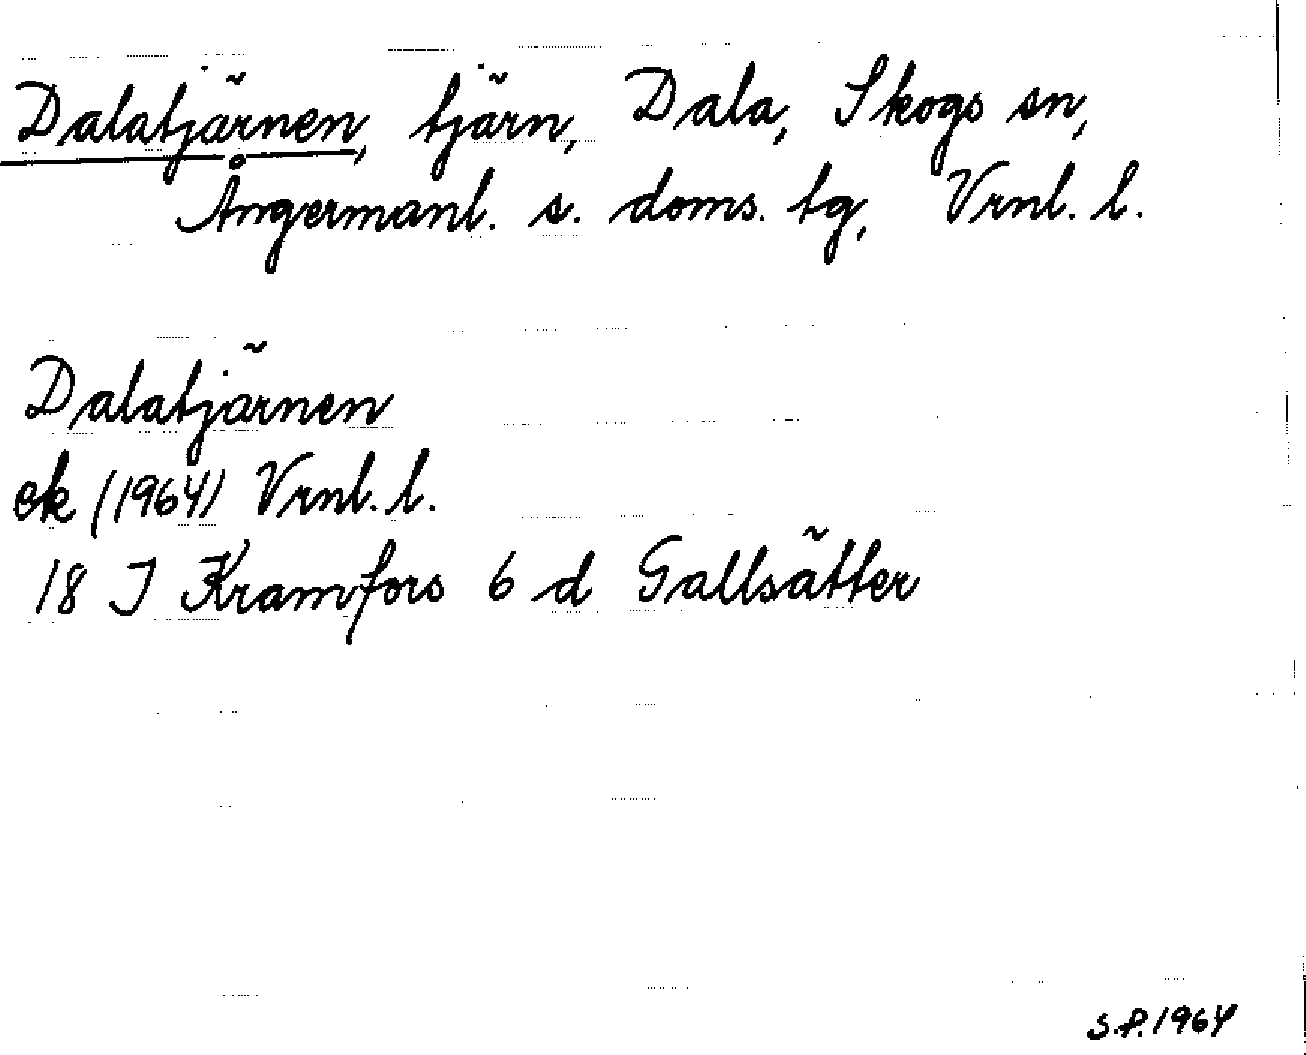 Dalatjärnen, tjärn, Dala, Skogs sn,
Ångermanl. s. doms. tg, Vrnl. l.
Dalatjärnen
ek (1964) Vrnl. l.
18 J Kramfors 6 d Gallsätter
S.P. 1964